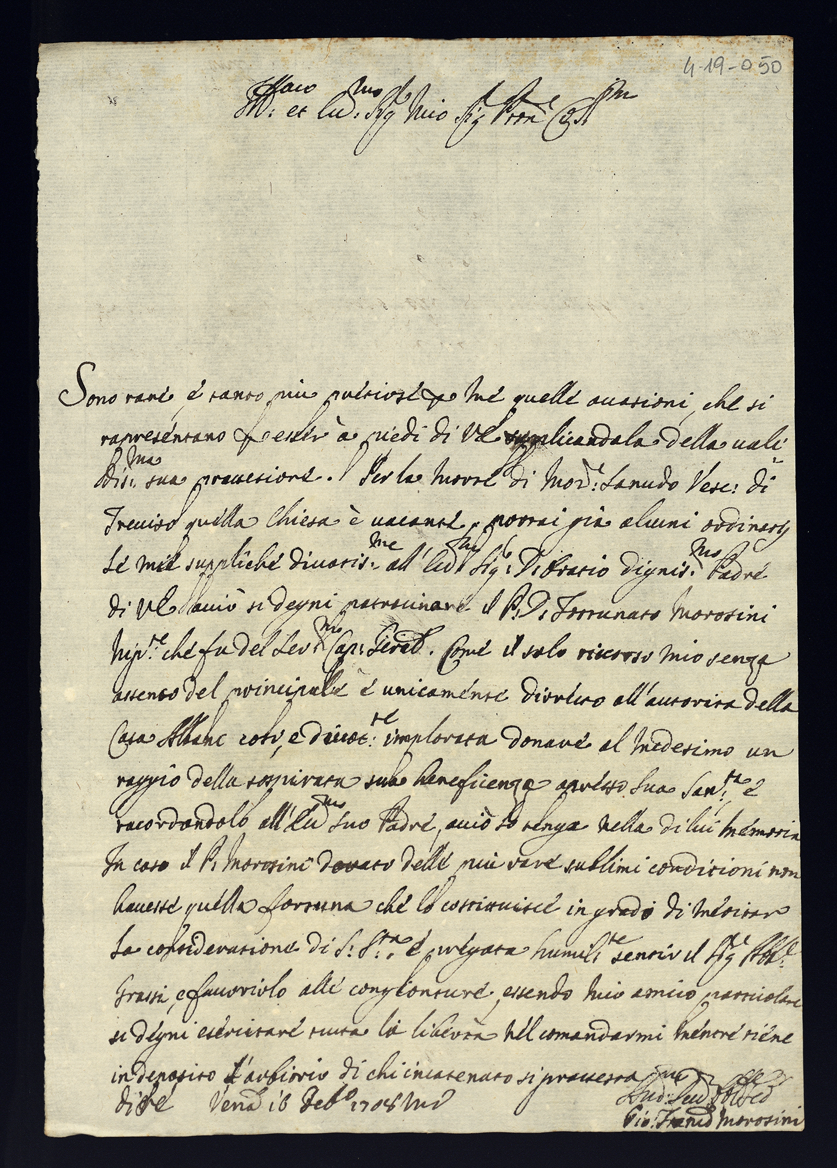 4-19-050
Ill.mo et Ecc.mo Sig.r Mio Sig.r Pron.e Col.mo
Sono rare, e tanto più pretiose per mé quelle occasioni, che si
rapresentano per esser à piedi di VE supplicandola della vali
dis.ma sua protetione. Per la morte di Mon.r Sanudo Vesc: di
Treviso quella Chiesa è vacante, porrai già alcuni ordinarij
le mie suppliché divotis.me all'Ecc.mo Sig.r D. Oratio dignis.mo Padre
di VE acciò si degni patrocinare il P. D. Fortunato Morosini
Nip.te che fu del Ser.mo Cap. Geral. Come il solo ricorso mio senza
assenso del principale è unicamente diretto all'autorità della
Casa Albani così, e divot.te implorata donare al medesimo un
raggio della sospirata sua beneficenza apresso Sua San.tà é
racordandolo all'Ecc.mo suo Padre, acciò lo tenga nella di lui memoria
In caso il P. Morosini dotato delle più rare sublimi conditioni non
havesse quella fortuna che lo costituisce in grado di meritar
la consideratione di S. S.tà é pregata humil.te sentir il Sig.r Abb.e
Grassi, e favorirlo alle congionture, essendo mio amico particolare
si degni esercitare tutta la libertà nel comandarmi mentre tiene
in deposito l'arbitrio di chi incatenato si protesta
di VE Ven.a 16 Feb.o 1708 MV
Gio: Fran.co Morosini